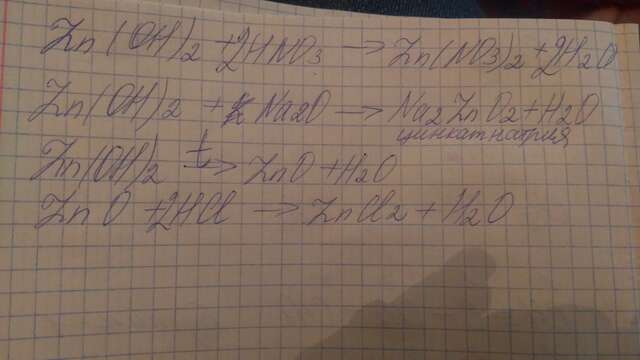 Zn(OH)₂ + 2HNO₃ → Zn(NO₃)₂ + 2H₂O
Zn(OH)₂ + Na₂O → Na₂ZnO₂ + H₂O
цинкат натрия
Zn(OH)₂ t→ ZnO + H₂O
ZnO + 2HCl → ZnCl₂ + H₂O